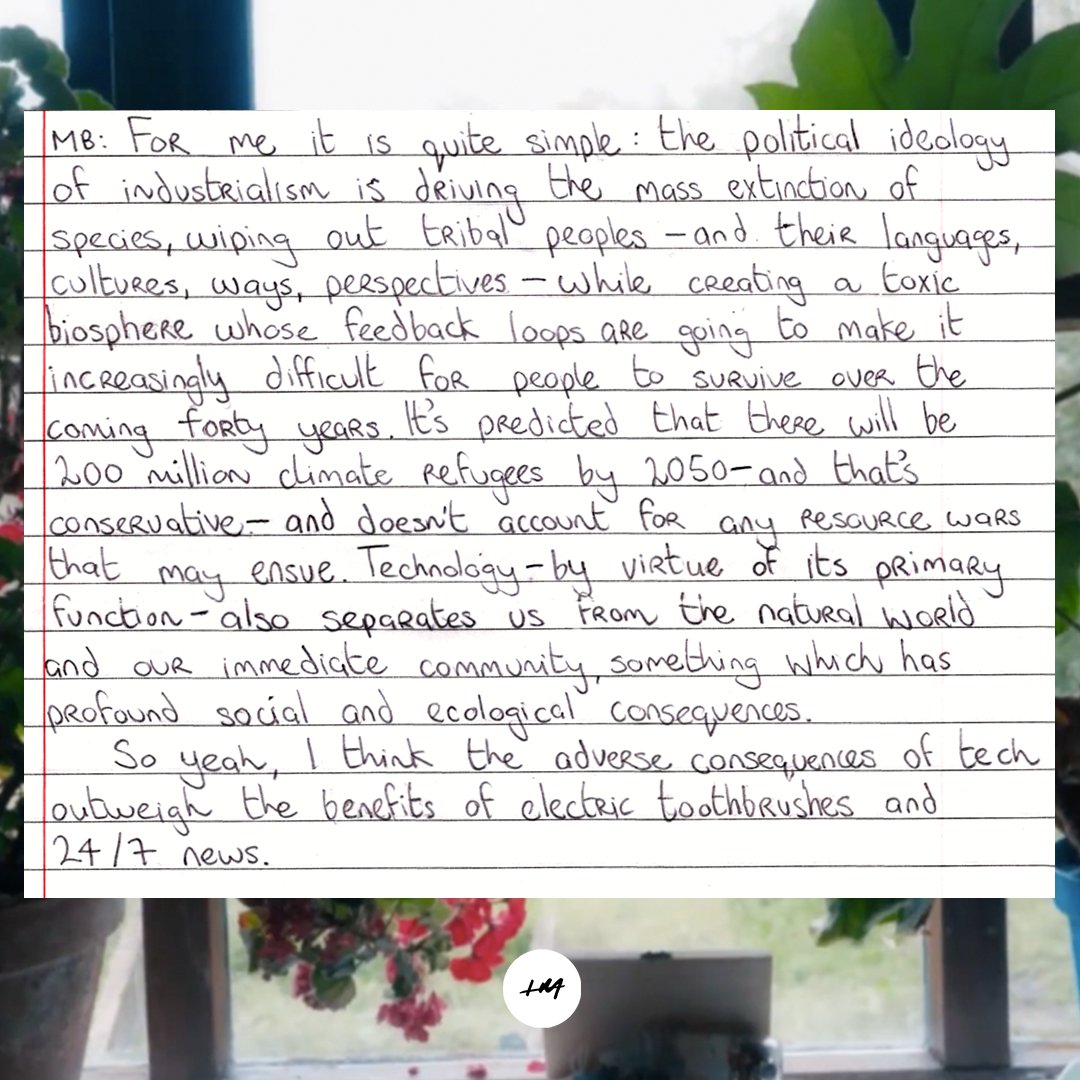 MB: For me it is quite simple: the political ideology
of industrialism is driving the mass extinction of
species, wiping out tribal peoples – and their languages,
cultures, ways, perspectives – while creating a toxic
biosphere whose feedback loops are going to make it
increasingly difficult for people to survive over the
coming forty years. It's predicted that there will be
200 million climate refugees by 2050 – and that's
conservative – and doesn't account for any resource wars
that may ensue. Technology – by virtue of its primary
function – also separates us from the natural world
and our immediate community, something which has
profound social and ecological consequences.
So yeah, I think the adverse consequences of tech
outweigh the benefits of electric toothbrushes and
24/7 news.